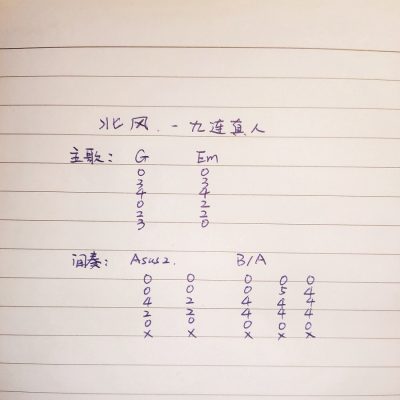 北风.-九连真人
主歌: G Em
0 0
3 3
4 4
0 2
2 2
3 0
间奏: Asus2. B/A
0 0 0 0 0
0 0 0 5 4
4 2 4 4 4
2 2 4 4 4
0 0 0 0 0
x x x x x